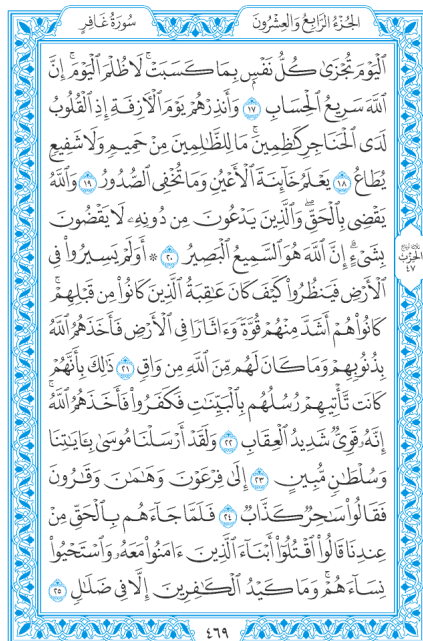 سُورَةُ غَافِرٍ
الجُزْءُ الرَّابِعُ وَالعِشْرُونَ
ٱلۡيَوۡمَ تُجۡزَىٰ كُلُّ نَفۡسِۭ بِمَا كَسَبَتۡۚ لَا ظُلۡمَ ٱلۡيَوۡمَۚ إِنَّ
ٱللَّهَ سَرِيعُ ٱلۡحِسَابِ ١٧ وَأَنذِرۡهُمۡ يَوۡمَ ٱلۡأٓزِفَةِ إِذِ ٱلۡقُلُوبُ
لَدَى ٱلۡحَنَاجِرِ كَٰظِمِينَۚ مَا لِلظَّٰلِمِينَ مِنۡ حَمِيمٖ وَلَا شَفِيعٖ
يُطَاعُ ١٨ يَعۡلَمُ خَآئِنَةَ ٱلۡأَعۡيُنِ وَمَا تُخۡفِي ٱلصُّدُورُ ١٩ وَٱللَّهُ
يَقۡضِي بِٱلۡحَقِّۖ وَٱلَّذِينَ يَدۡعُونَ مِن دُونِهِۦ لَا يَقۡضُونَ
بِشَيۡءٍۗ إِنَّ ٱللَّهَ هُوَ ٱلسَّمِيعُ ٱلۡبَصِيرُ ٢٠ ۞ أَوَلَمۡ يَسِيرُواْ فِي
ٱلۡأَرۡضِ فَيَنظُرُواْ كَيۡفَ كَانَ عَٰقِبَةُ ٱلَّذِينَ كَانُواْ مِن قَبۡلِهِمۡۚ
كَانُواْ هُمۡ أَشَدَّ مِنۡهُمۡ قُوَّةٗ وَءَاثَارٗا فِي ٱلۡأَرۡضِ فَأَخَذَهُمُ ٱللَّهُ
بِذُنُوبِهِمۡ وَمَا كَانَ لَهُم مِّنَ ٱللَّهِ مِن وَاقٖ ٢١ ذَٰلِكَ بِأَنَّهُمۡ
كَانَت تَّأۡتِيهِمۡ رُسُلُهُم بِٱلۡبَيِّنَٰتِ فَكَفَرُواْ فَأَخَذَهُمُ ٱللَّهُۚ
إِنَّهُۥ قَوِيّٞ شَدِيدُ ٱلۡعِقَابِ ٢٢ وَلَقَدۡ أَرۡسَلۡنَا مُوسَىٰ بِـَٔايَٰتِنَا
وَسُلۡطَٰنٖ مُّبِينٍ ٢٣ إِلَىٰ فِرۡعَوۡنَ وَهَٰمَٰنَ وَقَٰرُونَ
فَقَالُواْ سَٰحِرٞ كَذَّابٞ ٢٤ فَلَمَّا جَآءَهُم بِٱلۡحَقِّ مِنۡ
عِندِنَا قَالُواْ ٱقۡتُلُوٓاْ أَبۡنَآءَ ٱلَّذِينَ ءَامَنُواْ مَعَهُۥ وَٱسۡتَحۡيُواْ
نِسَآءَهُمۡۚ وَمَا كَيۡدُ ٱلۡكَٰفِرِينَ إِلَّا فِي ضَلَٰلٖ ٢٥
الحِزْب
٤٧
٤٦٩